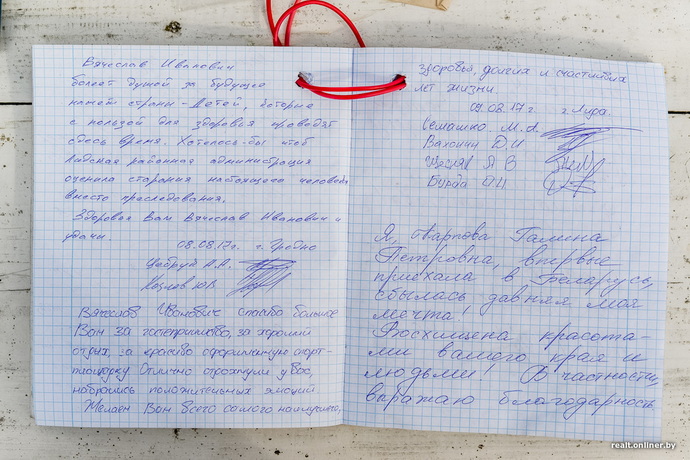 Вячеслав Иванович
болеет душой за будущее
нашей страны - детей, которые
с пользой для здоровья проводят
здесь время. Хотелось-бы чтоб
Лидская районная администрация
оценила старания настоящего человека
вместо преследования.
Здоровья Вам Вячеслав Иванович и
удачи.
08.08.17г. г. Гродно
Цабрук А.А.
Козлов Ю.В
Вячеслав Иванович спасибо большое
Вам за гостеприимство, за хороший
отдых, за красиво оформленную спорт-
площадку. Отлично отдохнули у вас,
набрались положительных эмоций
Желаем Вам всего самого наилучшего,
здоровья, долгих и счастливых
лет жизни.
09.08.17г. г. Лида.
Семашко. М.А.
Д.И
Я В
Бурда
Я, Петровна, впервые
приехала в Беларусь,
сбылась давняя моя
мечта!
Восхищена красота-
ми вашего края и
людьми! В частности,
выражаю благодарность
realt.onliner.by